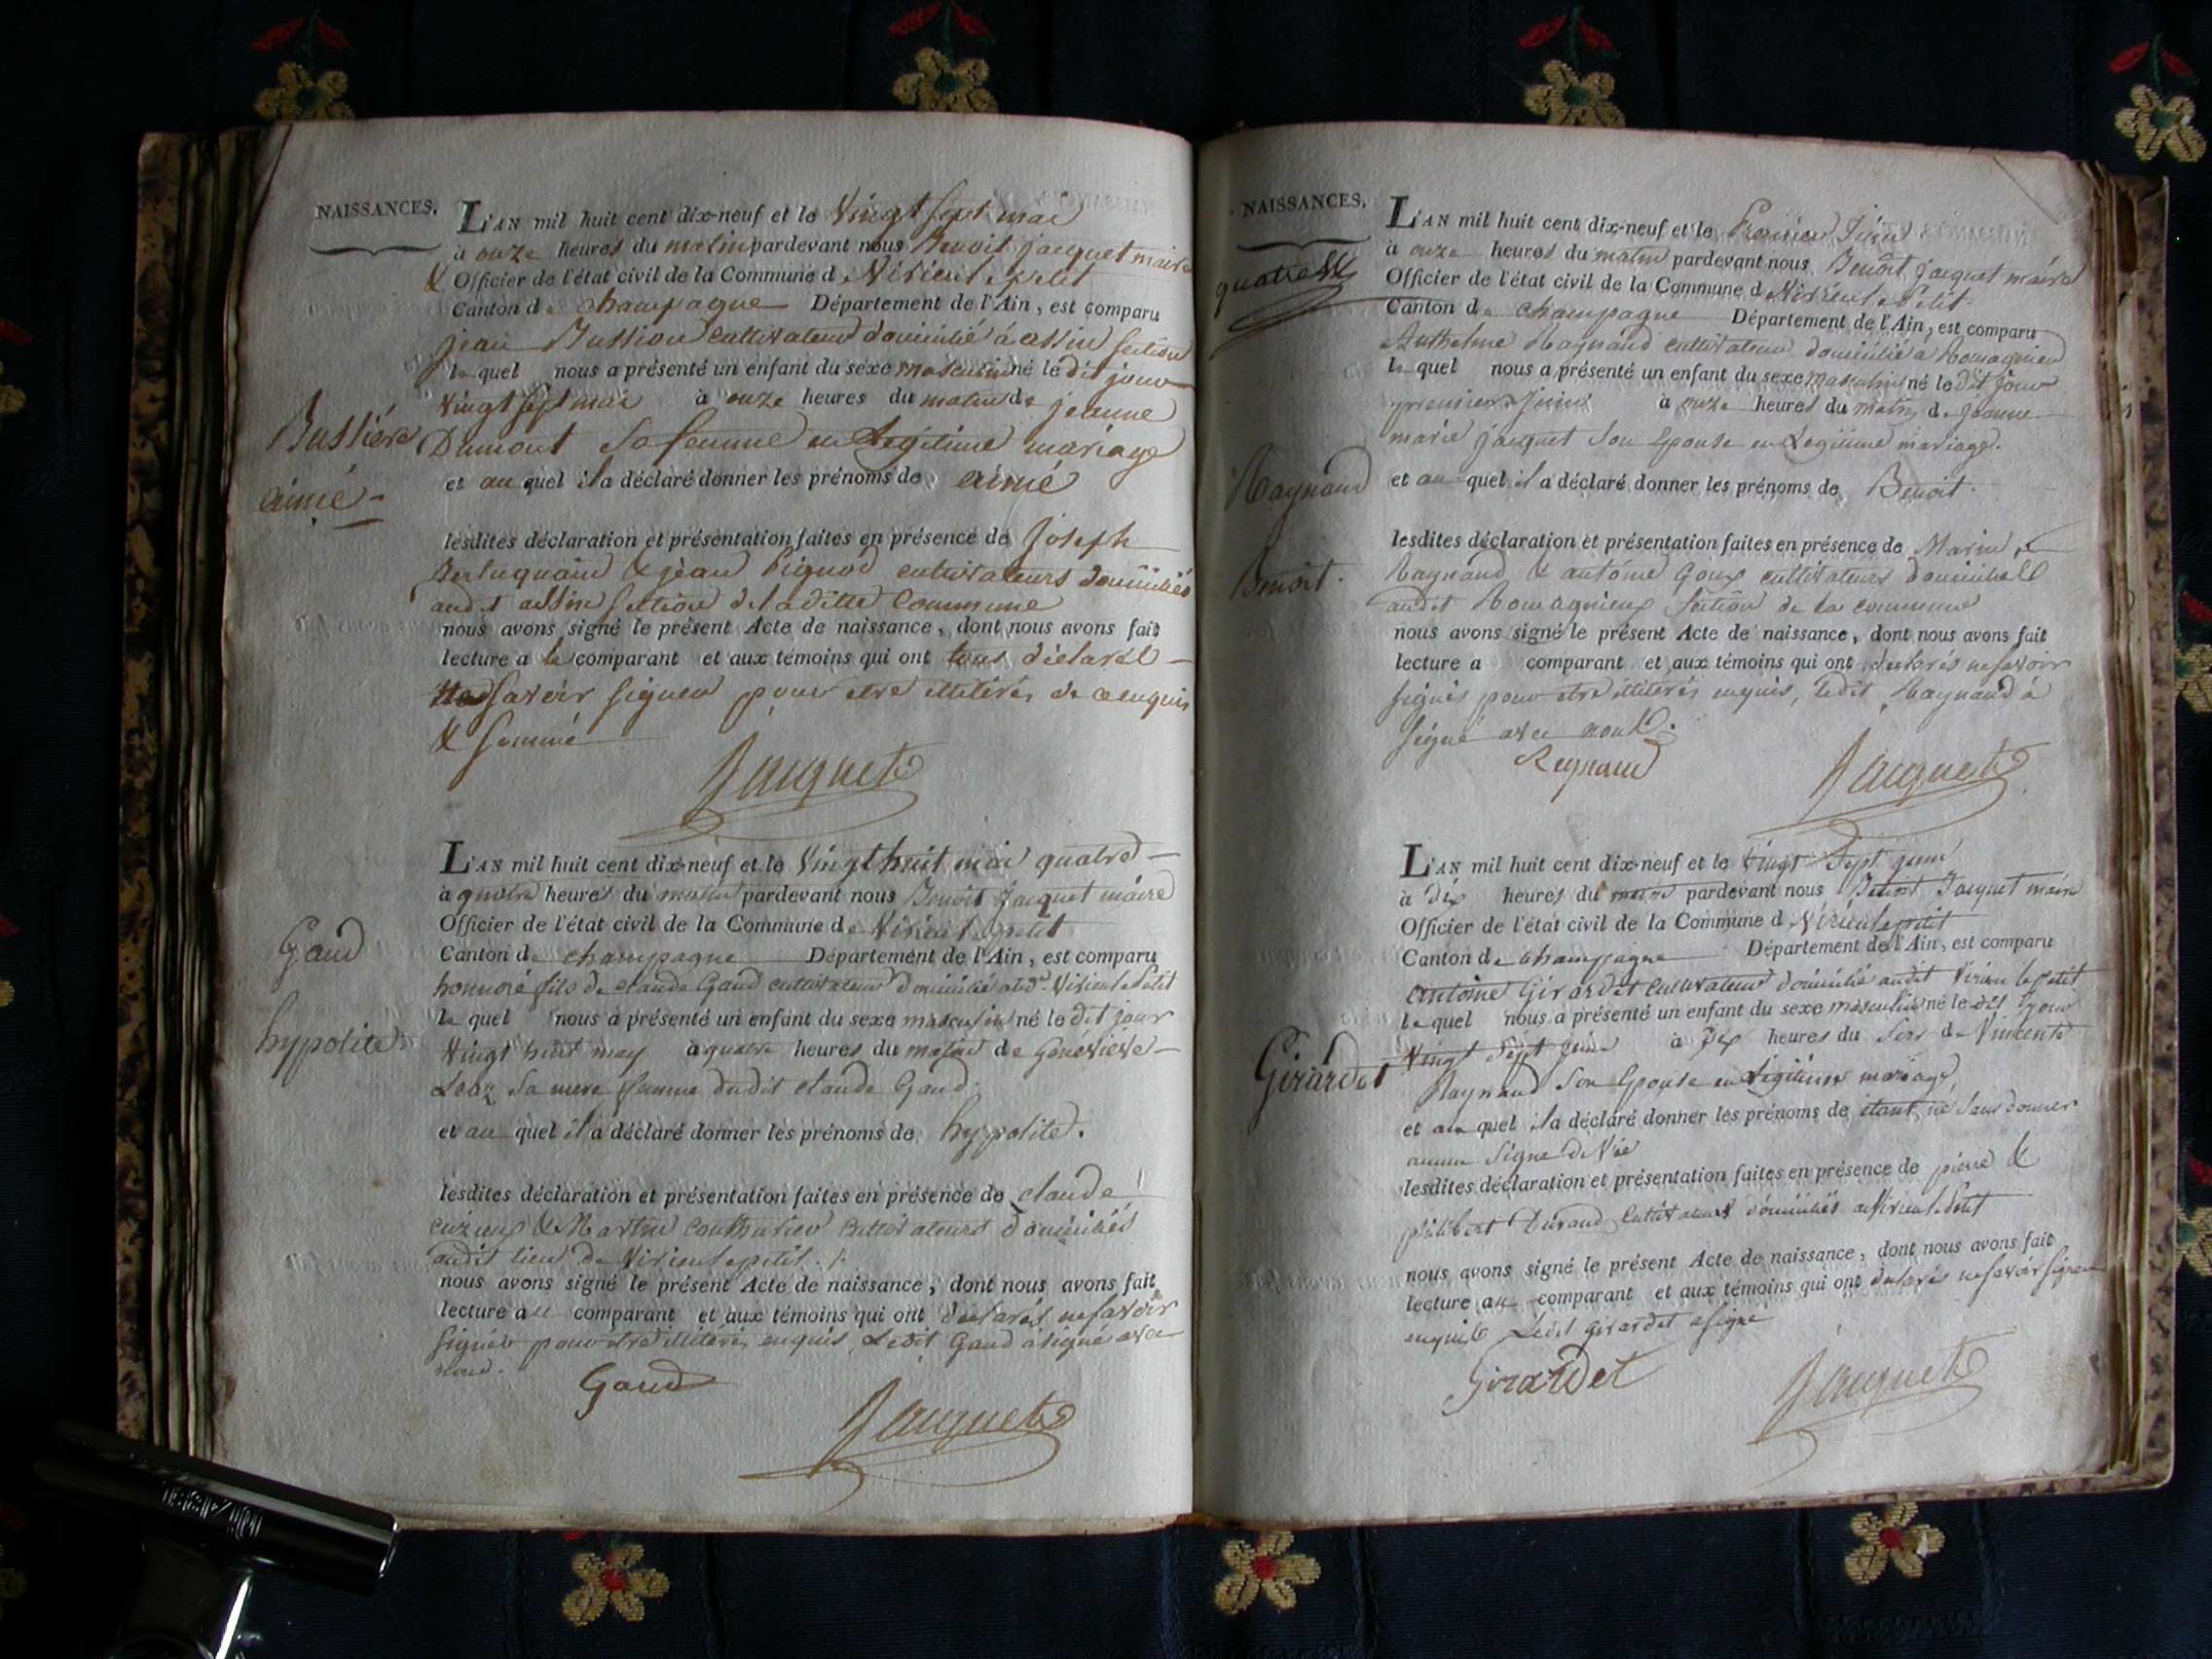 NAISSANCES.
L'AN mil huit cent dix-neuf et le Vingt sept mai
à onze heures du matin pardevant nous Benoit jacquet maire
& Officier de l'état civil de la Commune de Virieu le petit
Canton de champagne Département de l'Ain, est comparu
jean Bussiou cultivateur domicilié à assin section
lequel nous a présenté un enfant du sexe masculin né le dit jour
Vingt sept mai à onze heures du matin de jeanne
Bussiere
Dumont sa femme en Legitime mariage
et au quel il a déclaré donner les prénoms de aimé
aimé
lesdites déclaration et présentation faites en présence de Joseph
Berluquain & jean Pignod cultivateurs domiciliés
audit assin section de ladille Commune
nous avons signé le présent Acte de naissance, dont nous avons fait
lecture a le comparant et aux témoins qui ont tous déclarés
ne savoir signer pour etre illitérés de ce enquis
& sommé
Jacquet
L'AN mil huit cent dix-neuf et le Vingt huit mai quatre
à quatre heures du matin pardevant nous Benoit Jacquet maire
Officier de l'état civil de la Commune de Virieu le petit
Gaud
Canton de champagne Département de l'Ain, est comparu
honnoré fils de claude Gaud cultivateur domicilié Virieu le Petit
lequel nous a présenté un enfant du sexe masculin né le dit jour
hypolite
Vingt huit may à quatre heures du matin de Genevieve
sa mere femme dudit claude Gaud.
et au quel il a déclaré donner les prénoms de hypolite.
lesdites déclaration et présentation faites en présence de claude
cuzieux & Martin Couthurier Cultivateurs domiciliés
audit lieu de Virieu le petit.
nous avons signé le présent Acte de naissance, dont nous avons fait
lecture au comparant et aux témoins qui ont declarés ne savoir
signés pour etre illiterés enquis, Ledit Gaud à signé avec
nous.
Gaud
Jacquet
NAISSANCES.
L'AN mil huit cent dix-neuf et le Premier Juin
à onze heures du matin pardevant nous Benoit jacquet maire
quatre
Officier de l'état civil de la Commune de Virieu le Petit
Canton de champagne Département de l'Ain, est comparu
Anthelme Raynaud cultivateur domicilié a Romagnieu
lequel nous a présenté un enfant du sexe masculin né le dit jour
premier Juin à onze heures du matin de jeanne
marie jacquet son Epouse en Legitime mariage.
Raynaud
et au quel il a déclaré donner les prénoms de Benoit.
lesdites déclaration et présentation faites en présence de Marin
Benoit.
Raynaud & antoine Goux cultivateurs domiciliés
audit Romagnieux section de la commune
nous avons signé le présent Acte de naissance, dont nous avons fait
lecture a comparant et aux témoins qui ont declarés ne savoir
signés pour etre illiterés enquis, ledit Raynaud à
signé avec nous.
Reynaud
Jacquet
L'AN mil huit cent dix-neuf et le Vingt Sept juin
à dix heures du pardevant nous Benoit Jacquet maire
Officier de l'état civil de la Commune de Virieu le petit
Canton de champagne Département de l'Ain, est comparu
antoine Girardet cultivateur domicilié audit Virieu le petit
lequel nous a présenté un enfant du sexe masculin né le dit jour
Vingt Sept juin à dix heures du soir de Vincente
Girardet
Raynaud son Epouse en Legitime mariage,
et au quel il a déclaré donner les prénoms de etant né sans donner
aucun signe de Vie
lesdites déclaration et présentation faites en présence de pierre &
philibert Durand cultivateurs domiciliés a Virieu le Petit
nous avons signé le présent Acte de naissance, dont nous avons fait
lecture au comparant et aux témoins qui ont declarés ne savoir signer
enquis Ledit Girardet a signé
Girardet
Jacquet